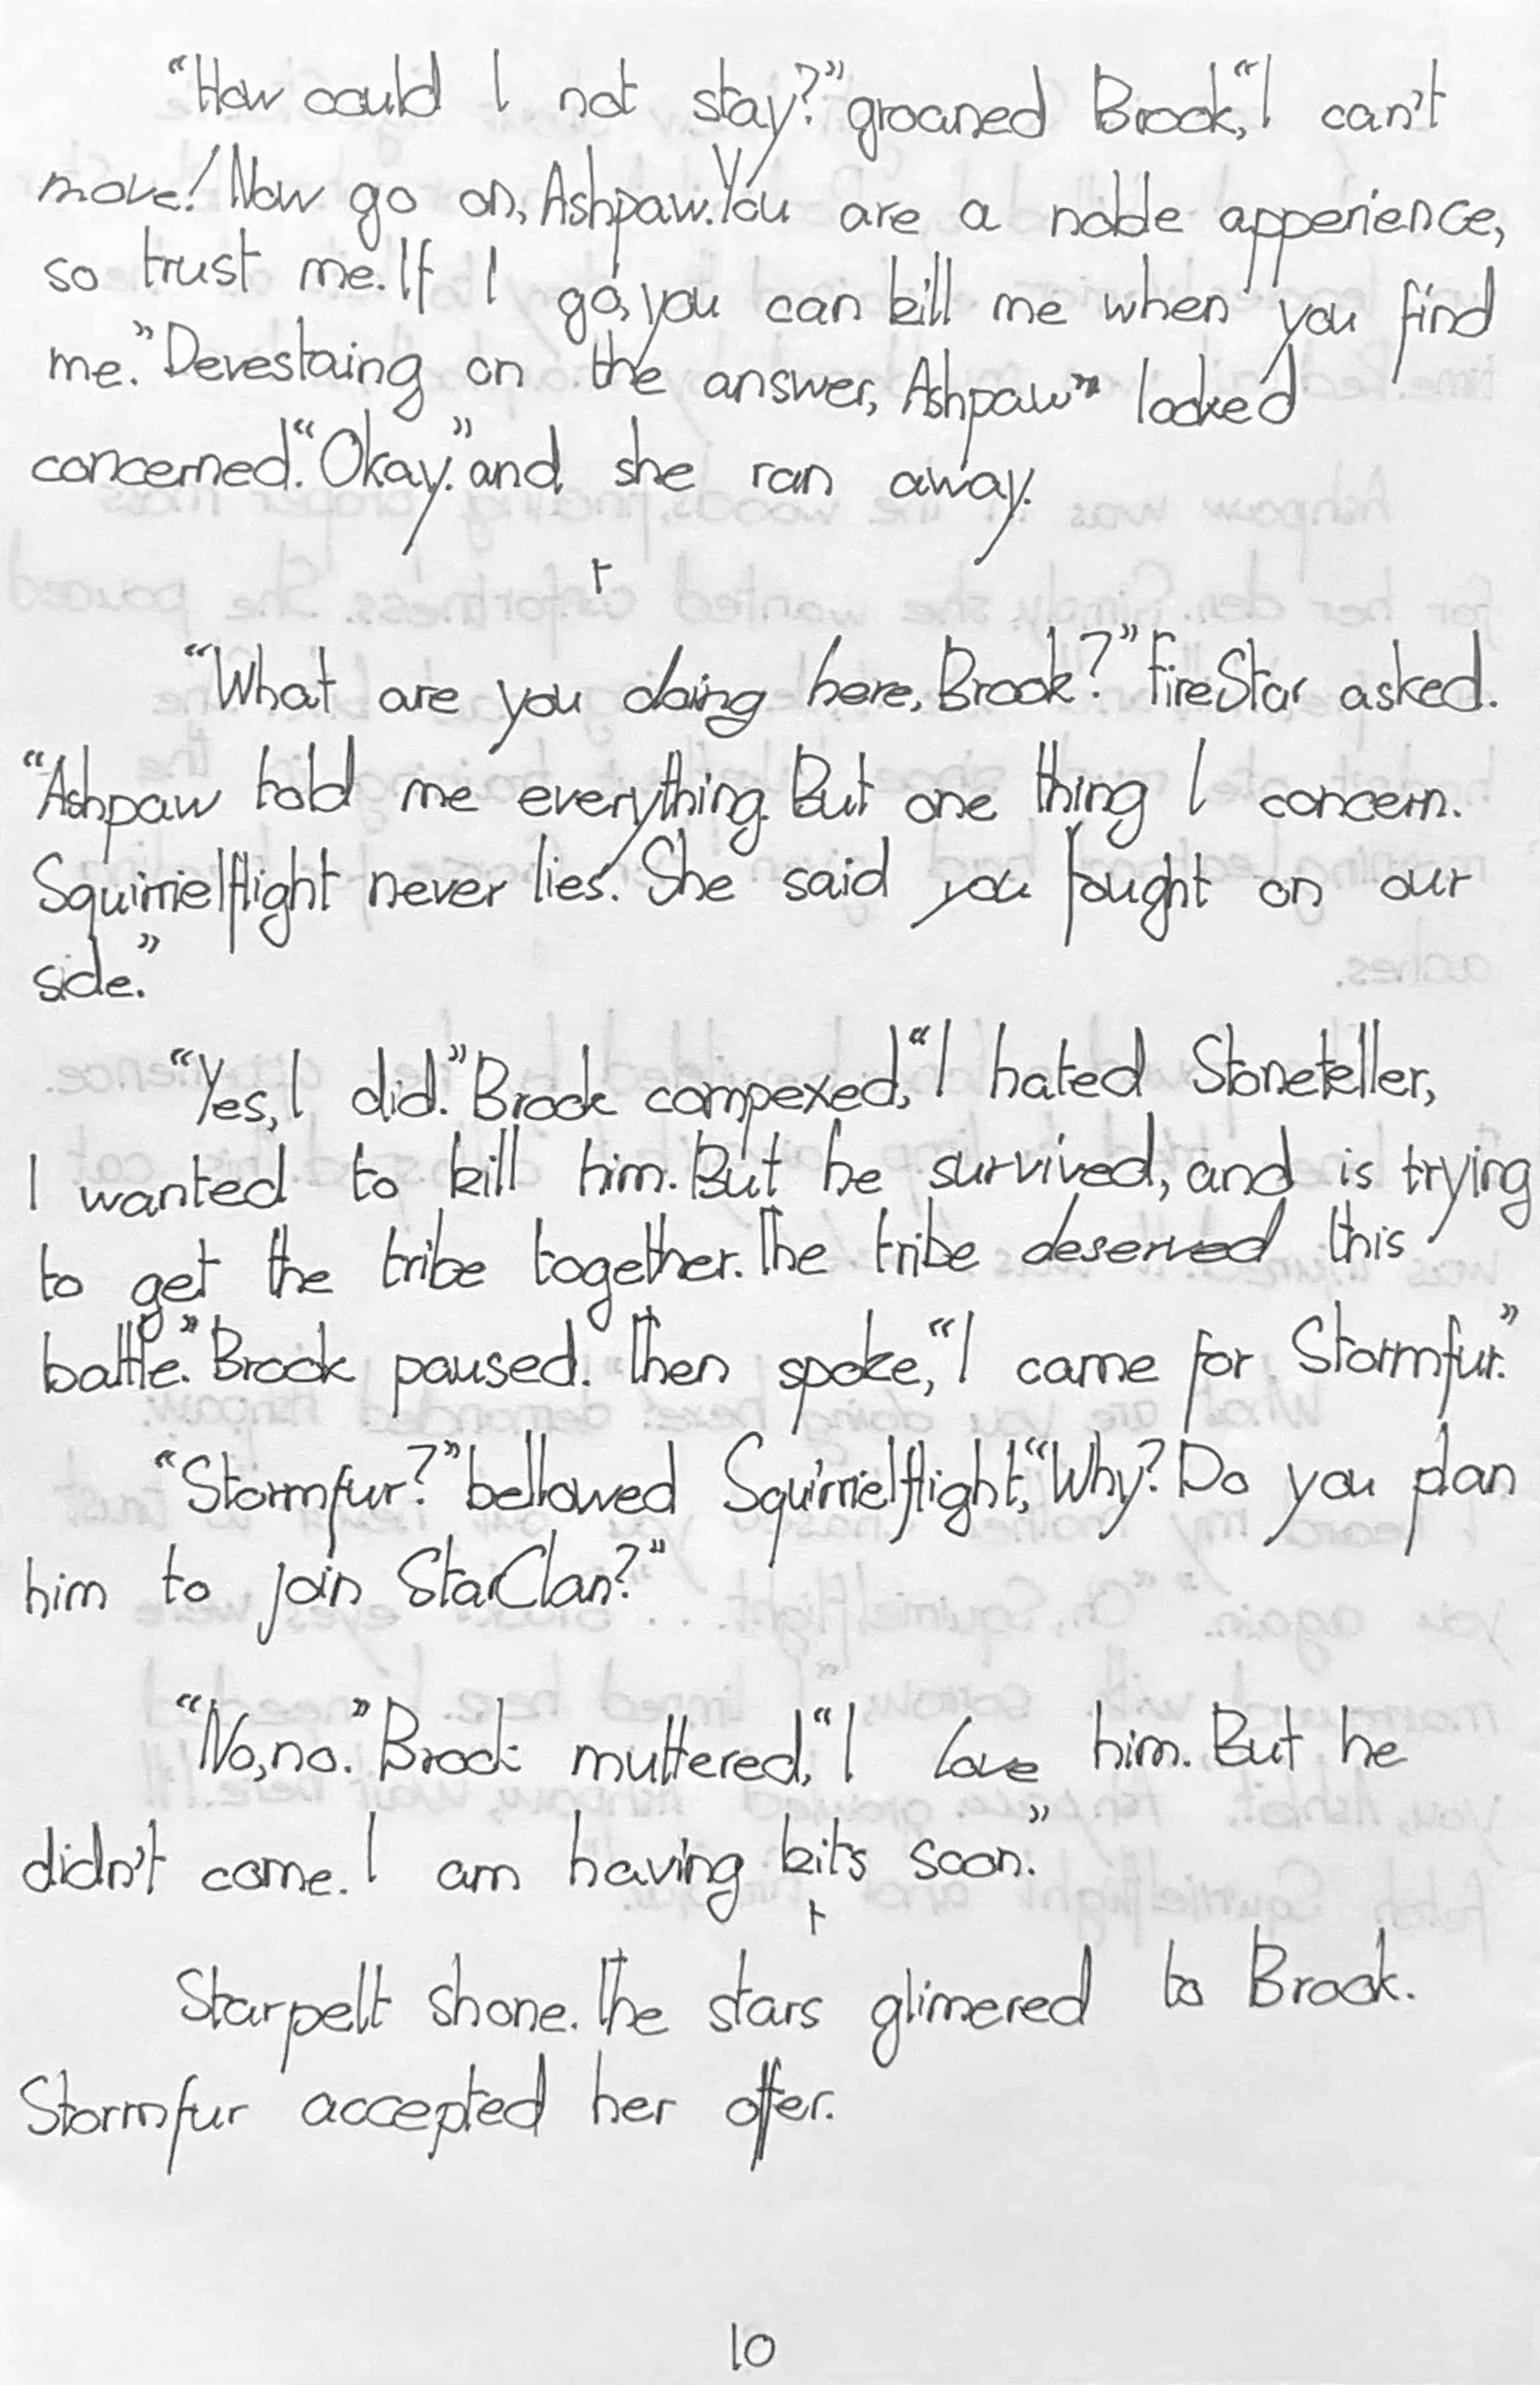 “How could I not stay?” groaned Brook, “I can't
move! Now go on, Ashpaw. You are a noble apperience,
so trust me. If I go, you can kill me when you find
me.” Devestaing on the answer, Ashpaw” looked
concerned. “Okay.” and she ran away.
“What are you doing here, Brook?” FireStar asked.
“Ashpaw told me everything. But one thing I concern.
Squirrielflight never lies. She said you fought on our
side.”
“Yes, I did.” Brook compexed, “I hated Stoneteller,
I wanted to kill him. But he survived, and is trying
to get the tribe together. The tribe deserved this
battle.” Brook paused. Then spoke, “I came for Stormfur.”
“Stormfur?” bellowed Squirrielflight, “Why? Do you plan
him to join StarClan?”
“No, no.” Brook muttered, “I love him. But he
didn't come. I am having kits soon.”
Starpelt shone. The stars glimered to Brook.
Stormfur accepted her offer.
10